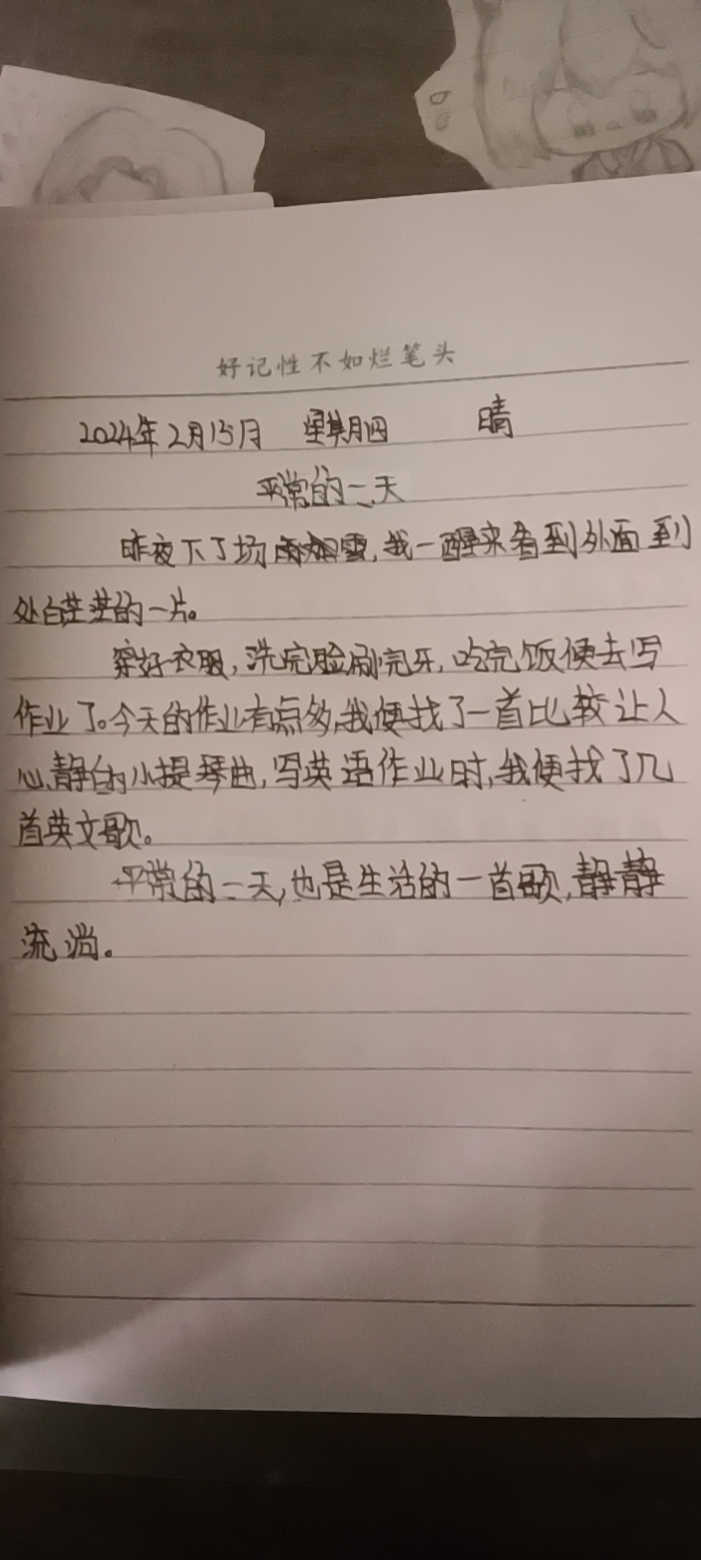 好记性不如烂笔头
2024年2月15日 星期四 晴
平常的一天
昨夜下了场雪,我一醒来看到外面到
处白茫茫的一片。
穿好衣服,洗完脸刷完牙,吃完饭便去写
作业了。今天的作业有点多,我便找了一首比较让人
心静的小提琴曲,写英语作业时,我便找了几
首英文歌。
平常的一天,也是生活的一首歌,静静
流淌。